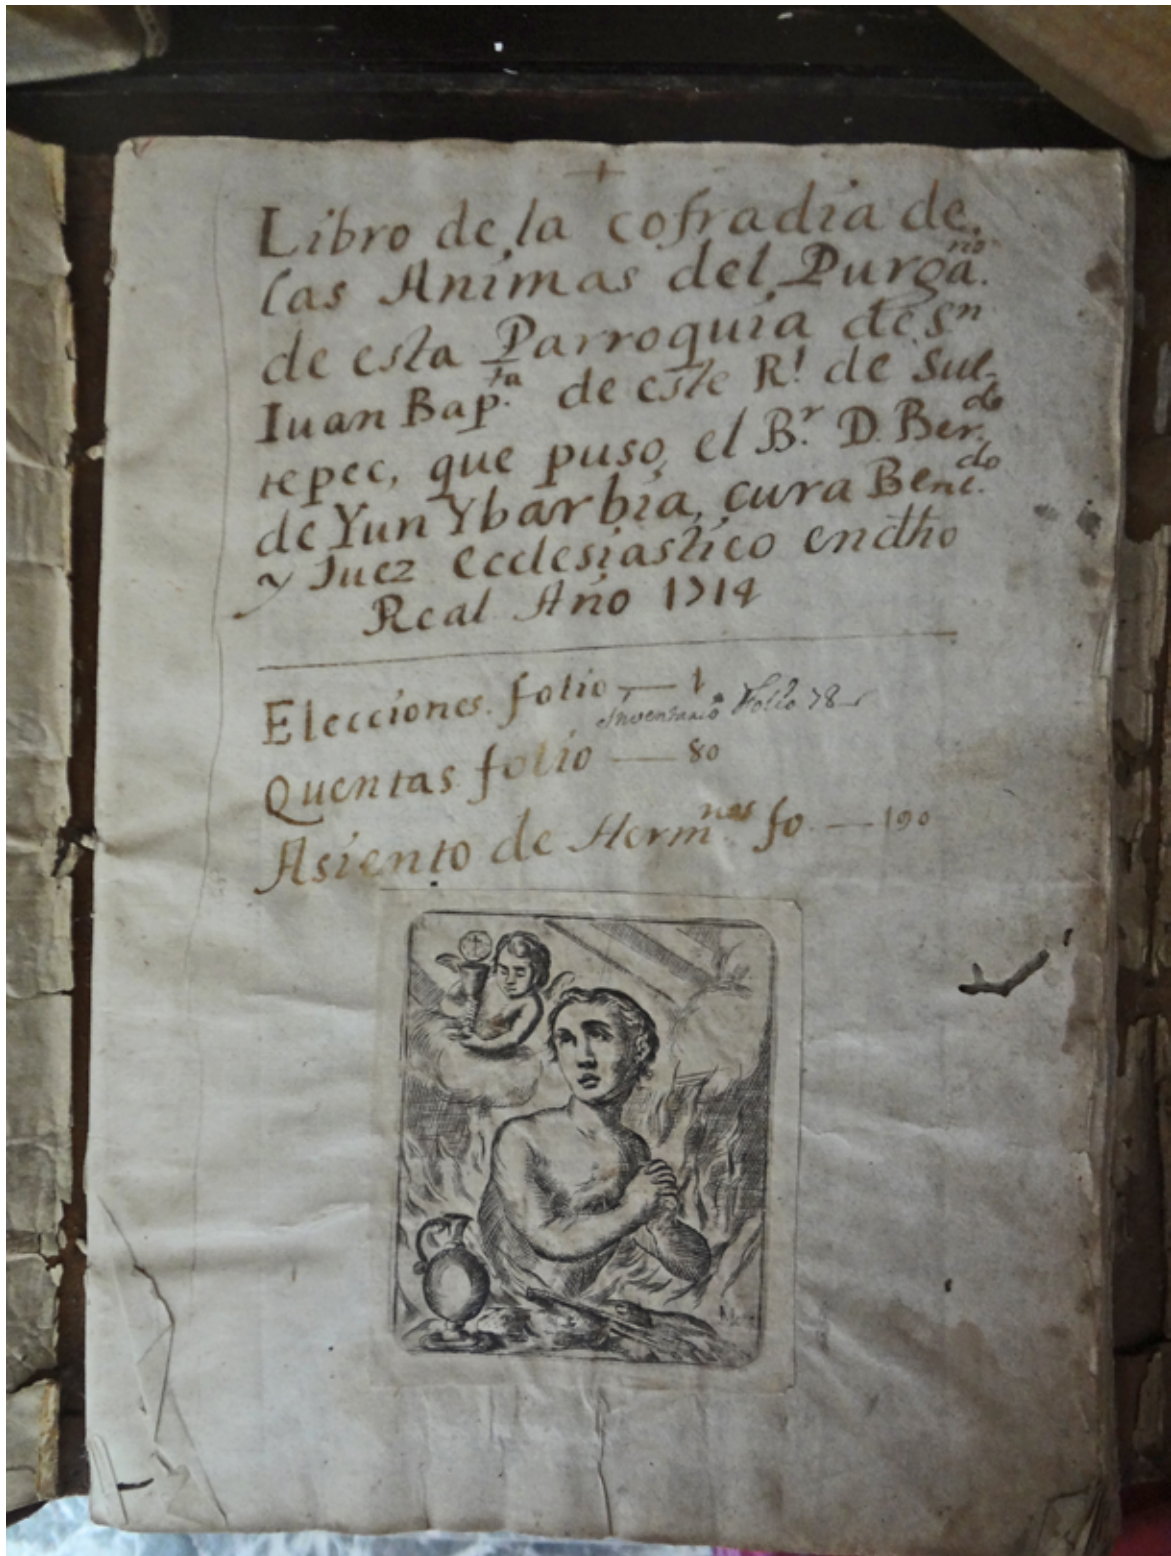 +
Libro de la cofradia de
las Animas del Purga.no
de esta Parroquia de Sn
Iuan Bap.ta de este R.l de Sul-
tepec, que puso el B.r D. Ber.do
de Yun Ybarbia, cura Beni.do
y Juez ecclesiastico en dho
Real Año 1714
Elecciones folio — 1
Inventario Folio 78
Quentas folio — 80
Asiento de Herm.nos fo — 190